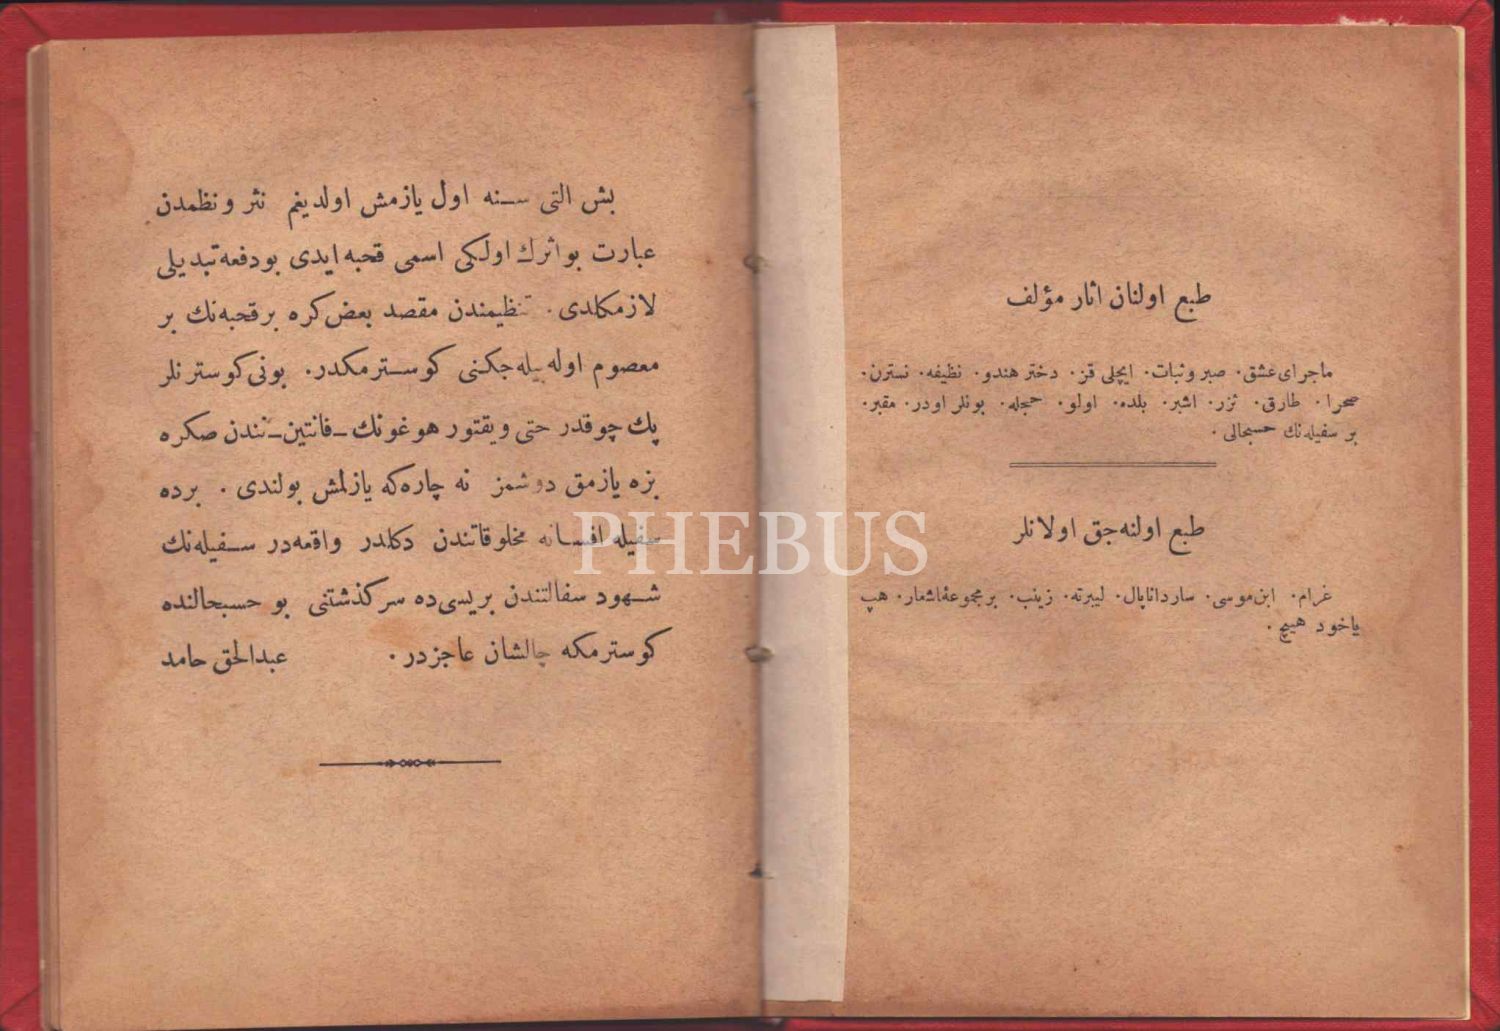 طبع اولنان اثار مؤلف
ماجرای عشق. صبر وثبات. ایچلی قز. دختر هندو. نظیفه. نسترن.
صحرا. طارق. تزر. اشبر. بلده. اولو. حجله. بونلر اودر. مقبر.
بر سفیله‌نك حسبحالی.
طبع اولنه‌جق اولانلر
غرام. ابن‌موسی. ساردانابال. لیبرته. زینب. بر مجموعهٔاشعار. هپ
یاخود هیچ.
بش التی سنه اول یازمش اولدیغم نثر ونظمدن
عبارت بو اثرك اولكی اسمی قحبه ایدی بودفعه تبدیلی
لازمكلدی. تنظیمندن مقصد بعض كره بر قحبه‌نك بر
معصوم اوله بیله‌جكنی كوسترمكدر. بونی كوسترنلر
پك چوقدر حتی ویقتور هوغونك ـ فانتین ـ ندن صكره
بزه یازمق دوشمز نه چاره‌كه یازلمش بولندی. برده
سفیله افسانه مخلوقاتندن دكلدر واقعه‌در سفیله‌نك
شهود سفالتندن بریسی‌ده سركذشتنی بو حسبحالنده
كوسترمكه چالشان عاجزدر. عبدالحق حامد
PHEBUS